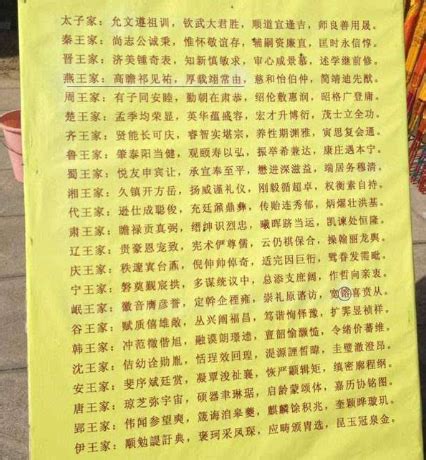 太子家：允文遵祖训，钦武大君胜，顺道宜逢吉，师良善用晟。
秦王家：尚志公诚秉，惟怀敬谊存，辅嗣资廉直，匡时永信惇。
晋王家：济美锺奇表，知新慎敏求，审心咸景慕，述学继前修。
燕王家：高瞻祁见祐，厚载翊常由，慈和怡伯仲，简靖迪先猷。
周王家：有子同安睦，勤朝在肃恭，绍伦敷惠润，昭格广登庸。
楚王家：孟季均荣显，英华蕴盛容，宏才升博衍，茂士立全功。
齐王家：贤能长可庆，睿智实堪宗，养性期渊雅，寅思复会通。
鲁王家：肇泰阳当健，观颐寿以弘，振卒希兼达，康庄遇本宁。
蜀王家：悦友申宾让，承宣奉至平，懋进深滋益，端居务穆清。
湘王家：久镇开方岳，扬威谨礼仪，刚毅循超卓，权衡素自持。
代王家：逊仕成聪俊，充廷鼐鼎彝，传贻连秀郁，炳耀壮洪基。
肃王家：瞻禄贡真弼，缙绅识烈忠，曦晖跻当远，凯谏处恒隆。
辽王家：贵豪恩宠致，宪术俨尊儒，云仍祺保合，操翰丽龙舆。
庆王家：秩邃寘台鼒，倪伸帅倬奇，适完因巨衍，鸳眷发需毗。
宁王家：磐奠觐宸拱，多谋统议中，总添支庶阔，作哲向亲衷。
岷王家：徽音膺彦誉，定幹企禋雍，崇礼原谘访，宽镕喜贲从。
谷王家：赋质僖雄敞，丛兴阐福昌，笃谐恂怿豫，扩霁显祯祥。
韩王家：冲范徵偕旭，融谟朗璟逵，亶韶愉灏慥，令绪价蕃维。
沈王家：佶幼诠勋胤，恬珵效回瑝，湜源諲晢暐，圭璧澈澄昂。
安王家：斐序斌廷赏，凝覃浚祉襄，恢严颛辑矩，缜密廓程纲。
唐王家：琼芝弥宇宙，硕器聿琳琚，启龄蒙颂体，嘉历协铭图。
郢王家：伟闻参望奭，箴诲洎皋夔，麒麟馀积兆，奎颖晔璇玑。
伊王家：顺勉諟訏典，褒珂采凤琛，应畴颁胄选，昆玉冠泉金。